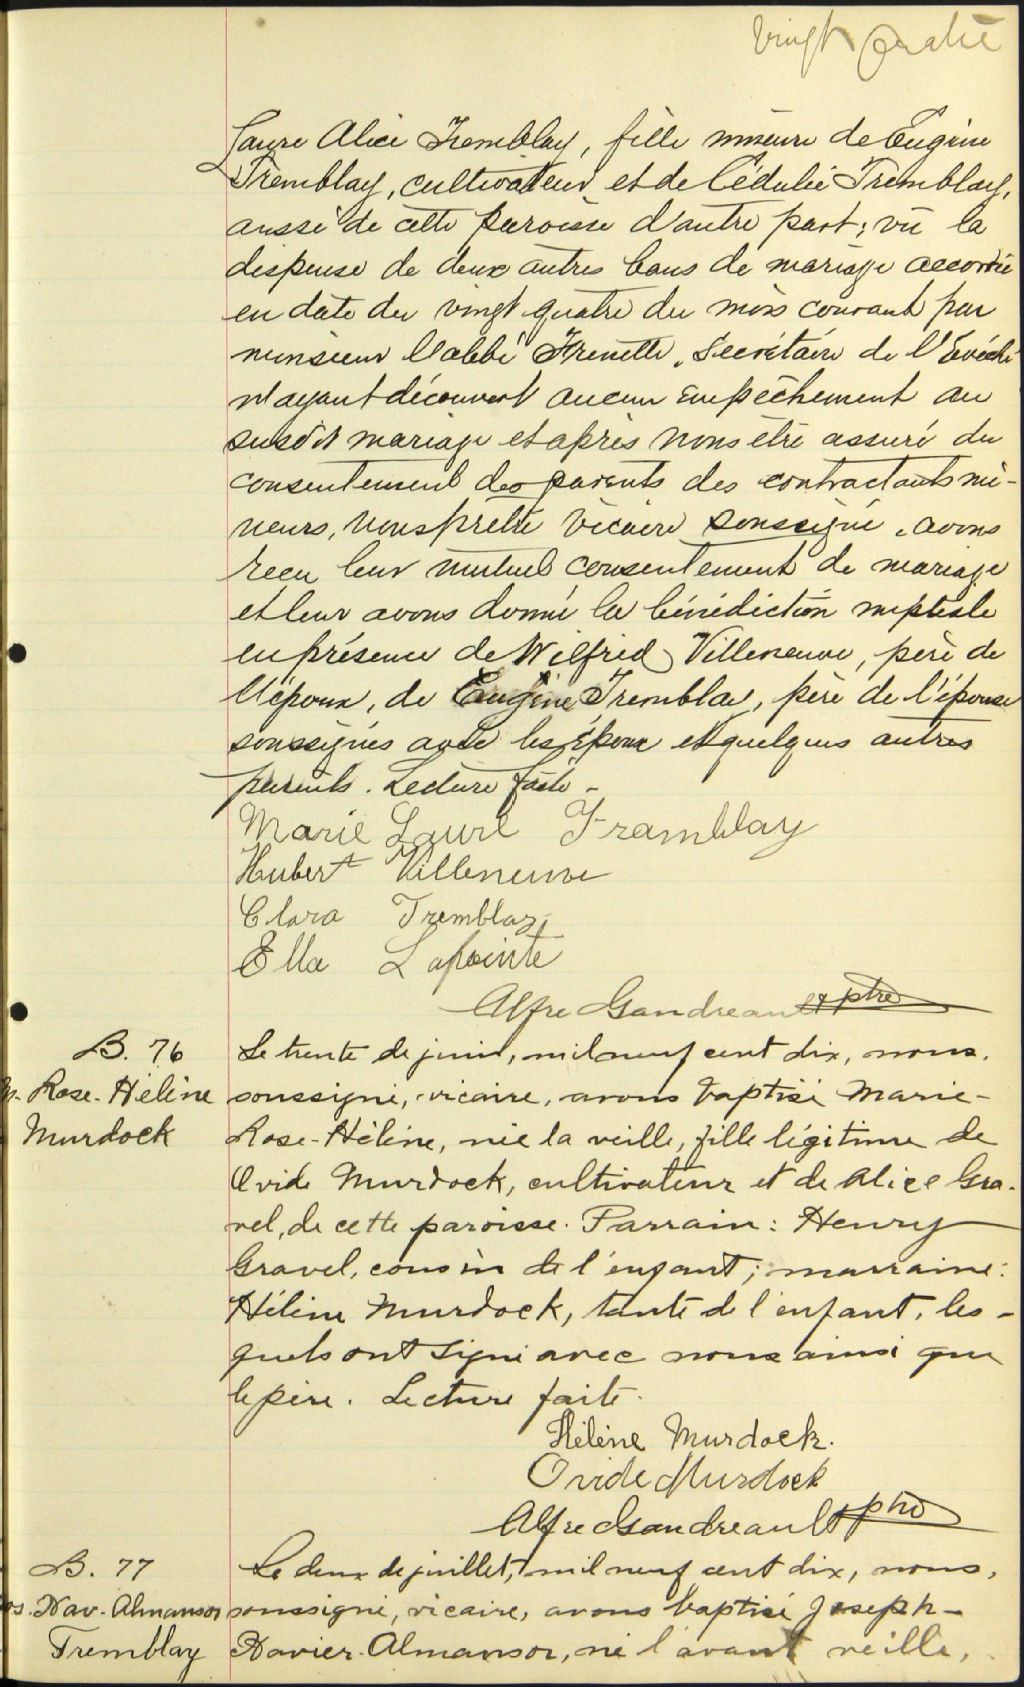 vingt quatre
Laure Alice Tremblay, fille mineure de Eugène
Tremblay, cultivateur et de Cédulie Tremblay,
aussi de cette paroisse d'autre part; vu la
dispense de deux autres bans de mariage accordée
en date du vingt quatre du mois courant par
monsieur l'abbé Frenette, Secrétaire de l'Evêché
n'ayant découvert aucun empêchement au
susdit mariage et après nous être assuré du
consentement des parents des contractants mi-
neurs, nous prêtre vicaire soussigné, avons
reçu leur mutuel consentement de mariage
et leur avons donné la bénédiction nuptiale
en présence de Wilfrid Villeneuve, père de
l'époux, de Eugène Tremblay, père de l'épouse
soussignés avec les époux et quelques autres
parents. Lecture faite -
Marie Laure Tramblay
Hubert Villeneuve
Clara Tremblay
Ella Lapointe
Alfre Gaudreault ptre
B. 76
M. Rose-Hélène
Murdock
Le trente de juin, mil neuf cent dix, nous,
soussigné, vicaire, avons baptisé Marie-
Rose-Hélène, née la veille, fille légitime de
Ovide Murdock, cultivateur et de Alice Gra-
vel, de cette paroisse. Parrain: Henry
Gravel, cousin de l'enfant; marraine:
Hélène Murdock, tante de l'enfant, les-
quels ont signé avec nous ainsi que
le père. Lecture faite.
Hélène Murdock.
Ovide Murdock
Alfre Gaudreault ptre
B. 77
Jos. Xav. Almansor
Tremblay
Le deux de juillet, mil neuf cent dix, nous,
soussigné, vicaire, avons baptisé Joseph-
Xavier-Almansor, né l'avant veille,